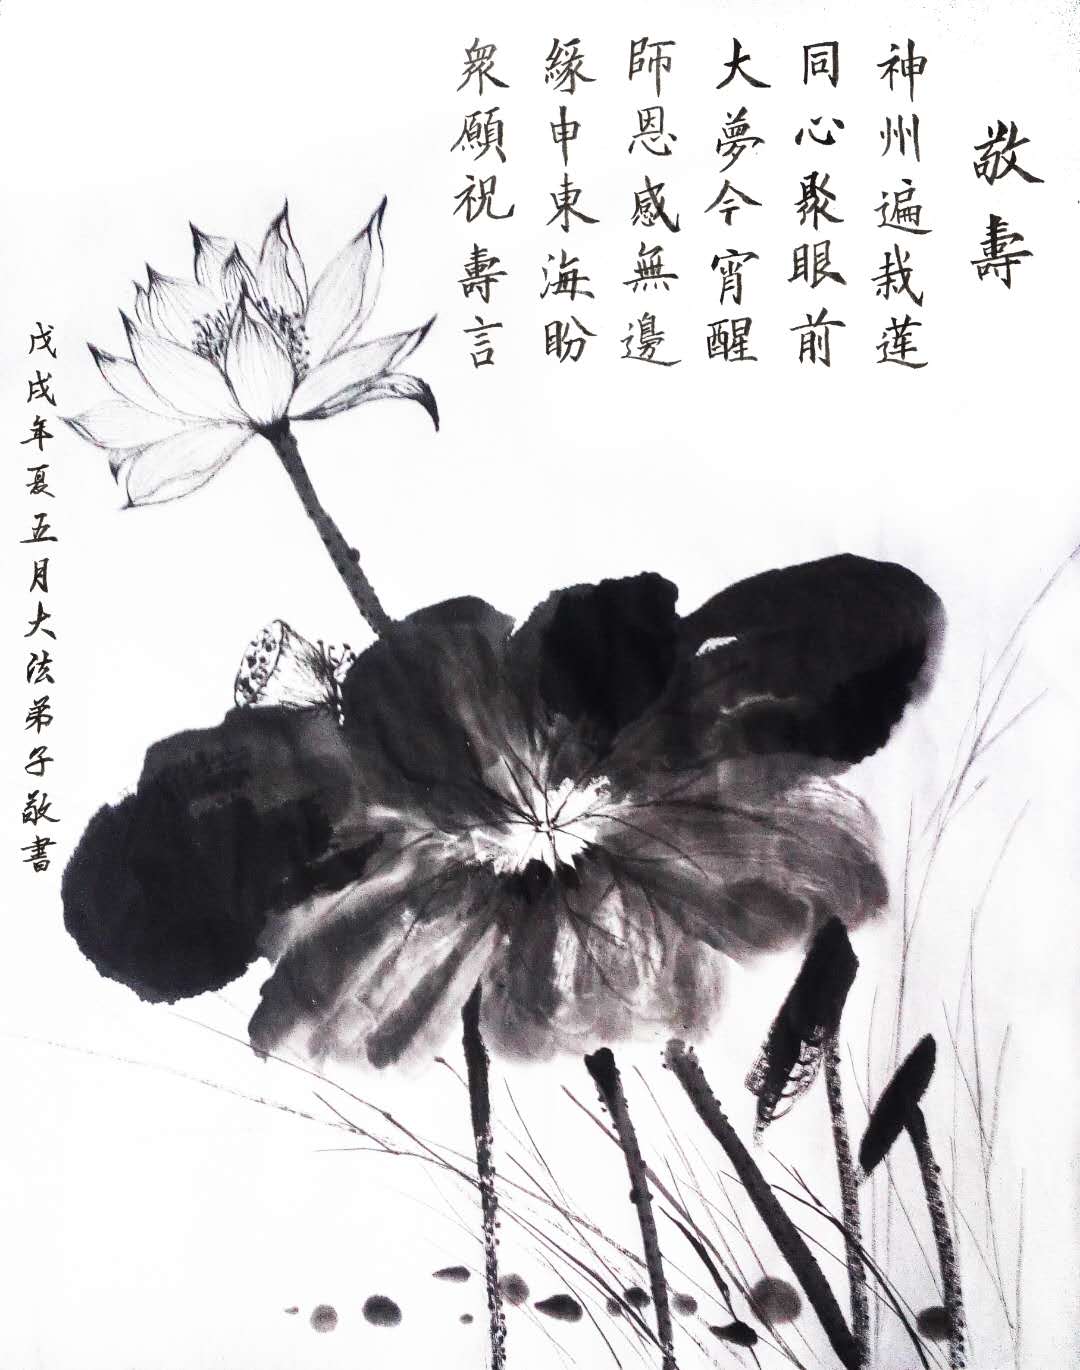 敬壽
神州遍栽莲
同心聚眼前
大夢今宵醒
師恩感無邊
緣申東海盼
衆願祝壽言
戊戌年夏五月大法弟子敬書